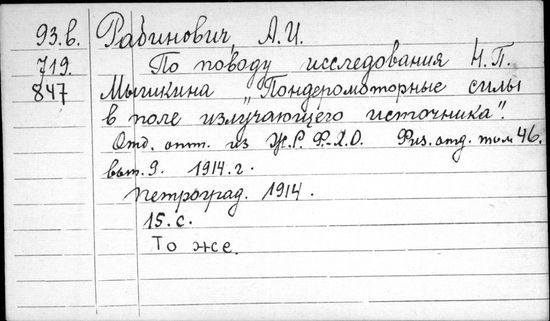 93.в. Рабинович, А.И.
719. По поводу исследования Н.П.
847 Мышкина „Пондеромоторные силы
в поле излучающего источника".
Отд. отт. из Ж.Р.Ф.-Х.О. Физ. отд. том 46.
вып. 9. 1914. г.
Петроград. 1914.
15. с.
То же.